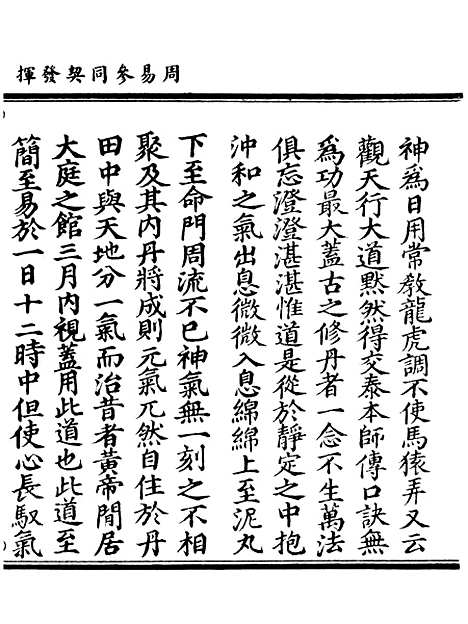 周易參同契發揮
神為日用常教龍虎調不使馬猿弄又云
觀天行大道黙然得交泰本師傳口訣無
為功最大蓋古之修丹者一念不生萬法
俱忘澄澄湛湛惟道是從於靜定之中抱
沖和之氣出息微微入息綿綿上至泥丸
下至命門周流不已神氣無一刻之不相
聚及其内丹將成則元氣兀然自住於丹
田中與天地分一氣而治昔者黃帝閒居
大庭之館三月内視蓋用此道也此道至
簡至易於一日十二時中但使心長馭氣